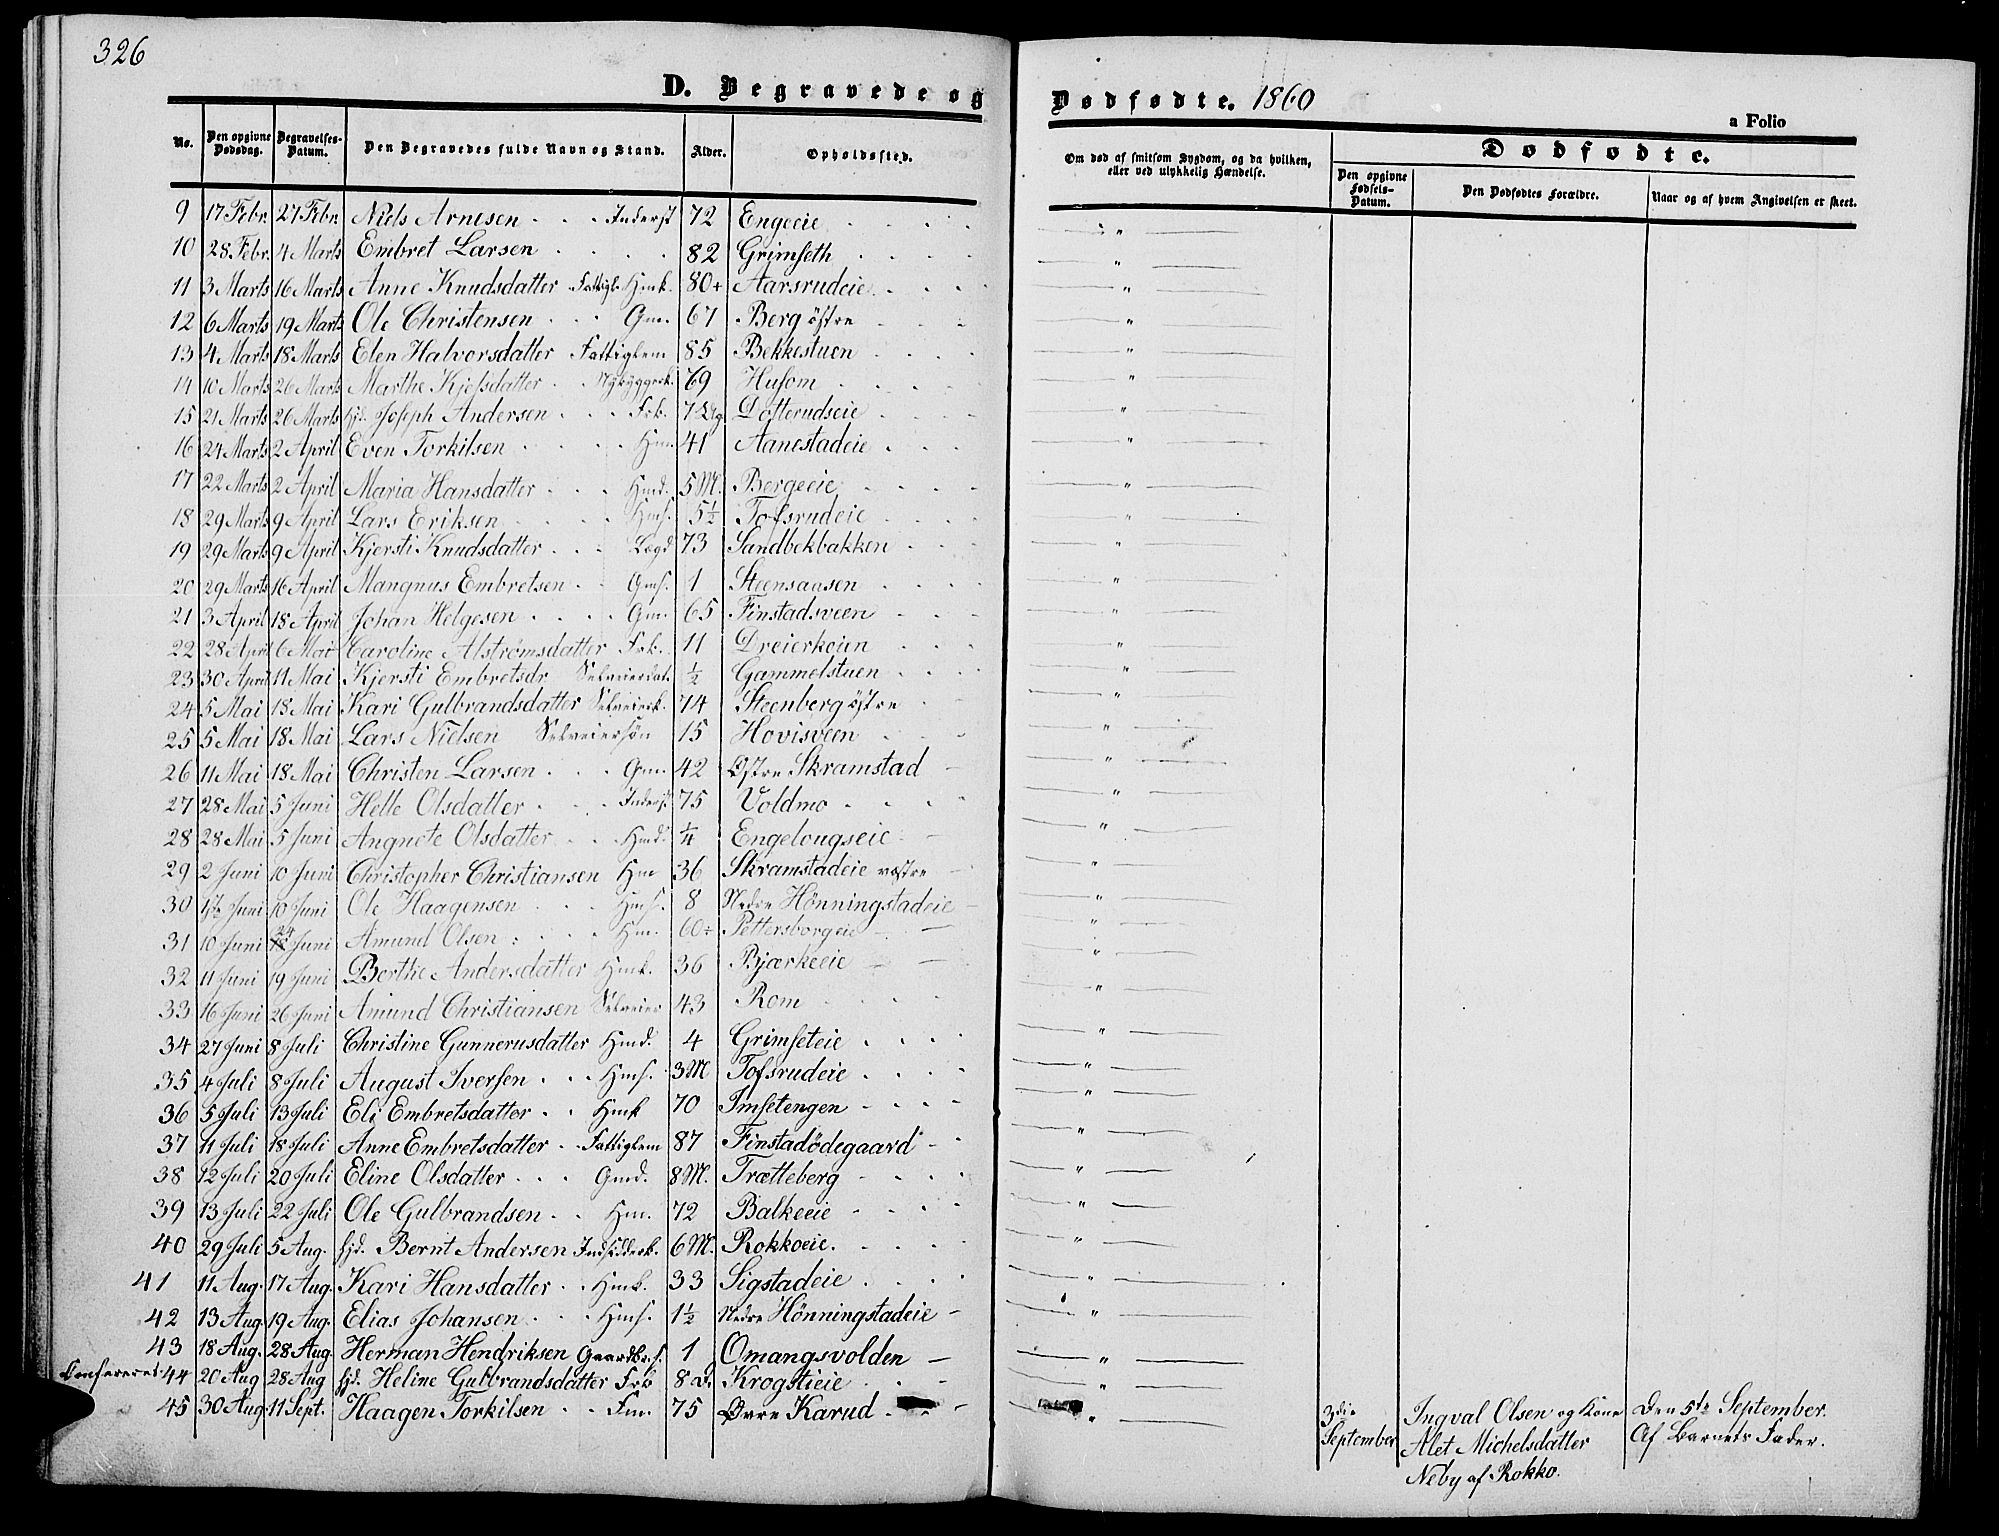 326
D. Begravede og Dødfødte. 1860
a Folio
No. Den opgivne Dødsdag. Begravelses-Datum. Den Begravedes fulde Navn og Stand. Alder. Opholdssted. Om død af smitsom Sygdom, og da hvilken, eller ved ulykkelig Hændelse. Dødfødte. Den opgivne Fødsels-Datum. Den Dødfødtes Forældre. Naar og af hvem Angivelsen er skeet.
9 17 Febr. 27 Febr. Niels Arnesen Inderst 72 Engeeie "
10 28 Febr. 4 Marts Embret Larsen 82 Grimseth "
11 3 Marts 16 Marts Anne Knudsdatter Fattigl. Hmk. 80+ Aarsrudeie "
12 6 Marts 19 Marts Ole Christensen Gm. 67 Berg østre "
13 4 Marts 18 Marts Elen Halvorsdatter Fattiglem 85 Bekkestuen "
14 10 Marts 26 Marts Marthe Kjelsdatter Nybyggerk. 69 Husom "
15 21 Marts 26 Marts hjd. Joseph Andersen Frk. 7 Dg. Dotterudseie "
16 24 Marts 2 April Even Torkilsen Hm. 41 Aanestadeie "
17 22 Marts 2 April Maria Hansdatter Hmd. 5 M. Bergeeie "
18 29 Marts 9 April Lars Eriksen Hms. 5½ Tofsrudeie "
19 29 Marts 9 April Kjersti Knudsdatter Lægd 73 Sandbekbakken "
20 29 Marts 16 April Mangnus Embretsen Gms. 1 Steensaasen "
21 3 April 18 April Johan Helgesen Gm. 65 Finstadsveen "
22 28 April 6 Mai Caroline Alstrømsdatter Frk. 11 Dreierkoien "
23 30 April 11 Mai Kjersti Embretsdr Selveierdat. ½ Gammelstuen "
24 5 Mai 18 Mai Kari Gulbrandsdatter Selveierk. 74 Steenberg østre "
25 5 Mai 18 Mai Lars Nielsen Selveiersøn 15 Hovisveen "
26 11 Mai 18 Mai Christen Larsen Gm. 42 Østre Skramstad "
27 28 Mai 5 Juni Helle Olsdatter Inderst 75 Voldmo "
28 28 Mai 5 Juni Angnete Olsdatter Hmd. ¼ Engelougseie "
29 2 Juni 10 Juni Christopher Christiansen Hm 36 Skramstadeie væstre "
30 1ste Juni 10 Juni Ole Haagensen Hms. 8 Nedre Hönningstadeie "
31 10 Juni 24 Juni Amund Olsen Hm. 60÷ Pettersborgeie "
32 11 Juni 19 Juni Berthe Andersdatter Hmk. 36 Bjærkeeie "
33 16 Juni 26 Juni Amund Christiansen Selveier 43 Rom "
34 27 Juni 8 Juli Christine Gunnerusdatter Hmd. 4 Grimseteie "
35 4 Juli 8 Juli August Iversen Hms. 3 M Tofsrudeie "
36 5 Juli 13 Juli Eli Embretsdatter Hmk 70 Imsetengen "
37 11 Juli 18 Juli Anne Embretsdatter Fattiglem 87 Finstadödegaard "
38 12 Juli 20 Juli Eline Olsdatter Gmd. 8 M. Trætteberg "
39 13 Juli 22 Juli Ole Gulbrandsen Hm. 72 Balkeeie "
40 29 Juli 5 Aug. hjd. Bernt Andersen Indsidderk. 6 M. Rokkoeie. "
41 11 Aug. 17 Aug. Kari Hansdatter Hmk. 33 Sigstadeie "
42 13 Aug. 19 Aug. Elias Johansen Hms. 1½ Nedre Hönningstadeie "
43 18 Aug. 28 Aug. Herman Hendriksen Gaardbr.s. 1 Omangsvolden "
Confereres 44 20 Aug 28 Aug hjd. Heline Gulbrandsdatter Frk 8 D. Krogstieie "
45 30 Aug. 11 Sept. Haagen Torkilsen Fm. 75 Øvre Karud "
3die September Ingval Olsen og Kone Alet Michelsdatter Neby af Rokko. Den 5te September. Af Barnets Fader.